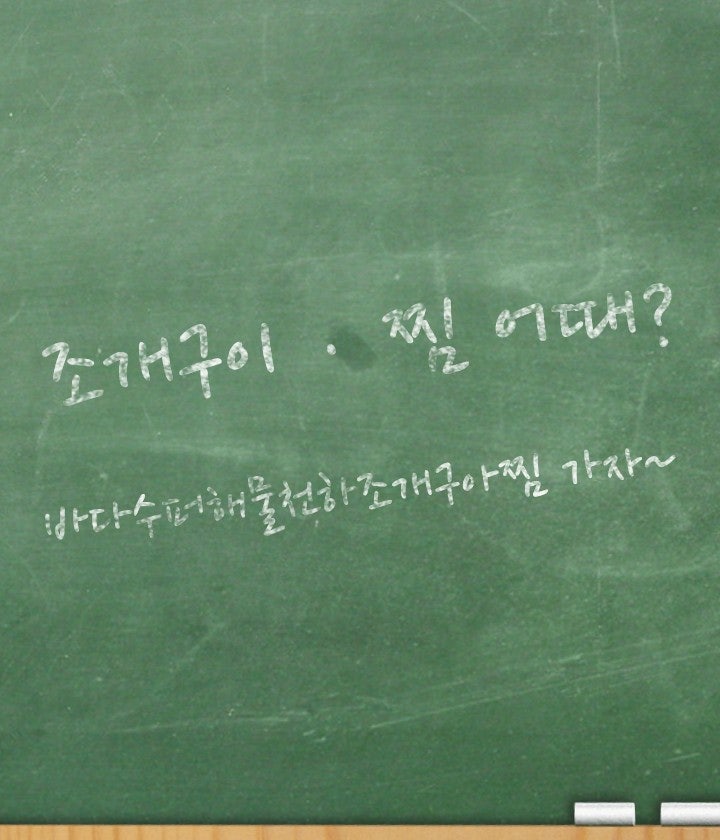 조개구이 · 찜 어때?
바다수퍼해물천하조개구아찜 가자~